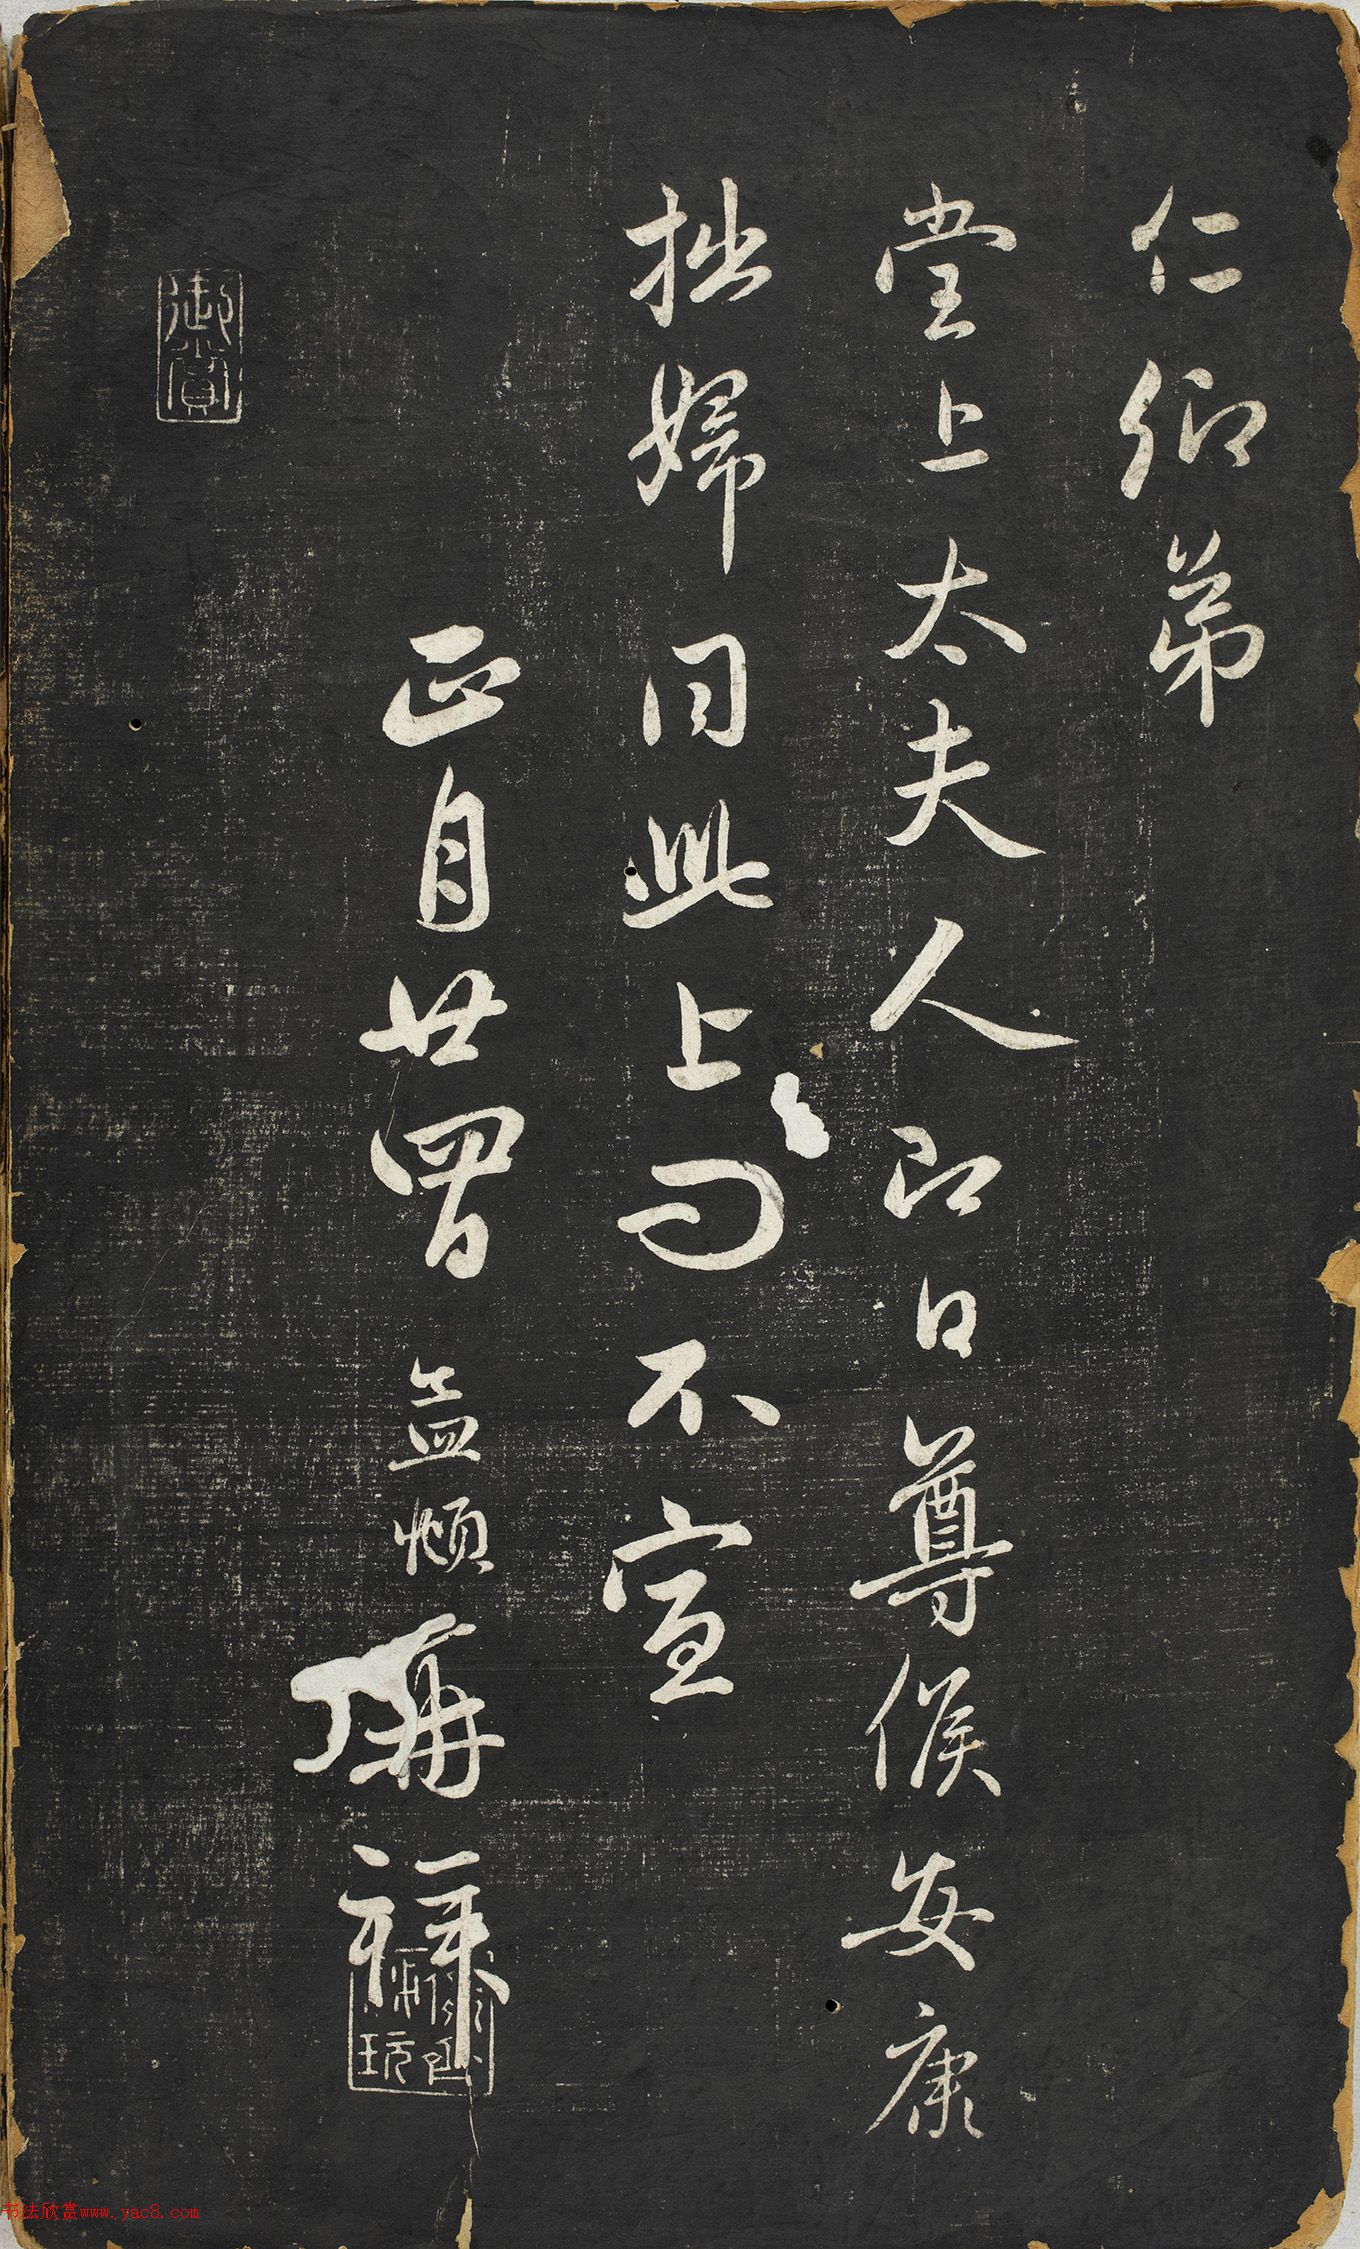 仁卿弟
堂上太夫人即日尊候安康
拙婦同此上問不宣
正月廿四日孟頫再拜
御賞
书法欣赏www.yac8.com